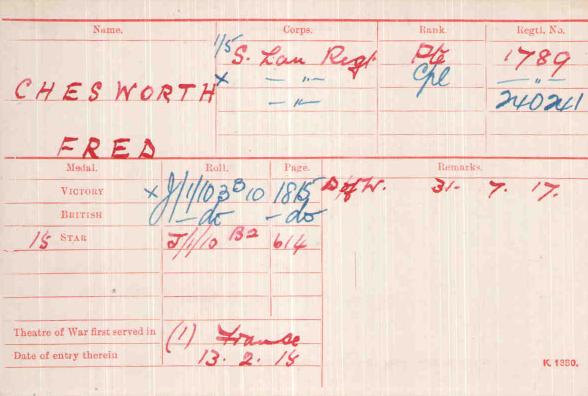 Name. Corps. Rank. Regtl. No.
1/5 S. Lan Regt. Pte 1789
x — " — Cpl — " —
CHESWORTH — " — 240241
FRED
Medal. Roll. Page. Remarks.
VICTORY x J/1/103 B10 1815 D of W. 31. 7. 17.
BRITISH — do — do
15 STAR J/1/10 B2 614
Theatre of War first served in (1) France
Date of entry therein 13. 2. 15
K 1380.